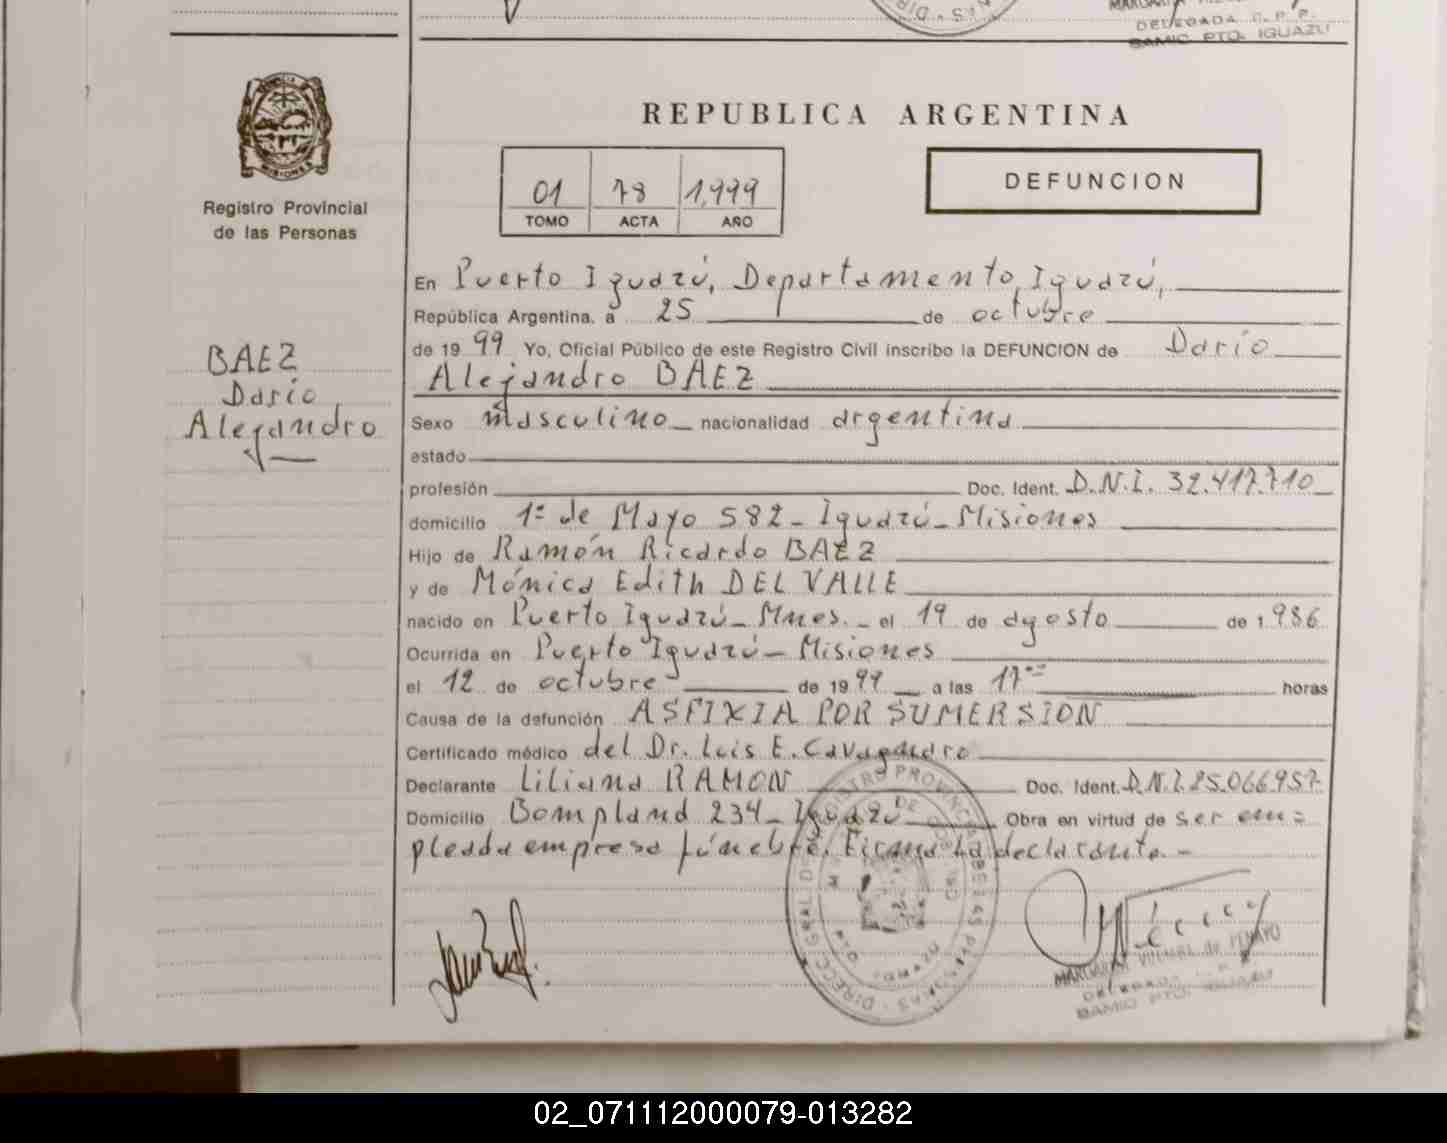 DELEGADA R.P.P.
SAMIC PTO. IGUAZU
MISIONES
Registro Provincial
de las Personas
BAEZ
Darío
Alejandro
REPUBLICA ARGENTINA
01 78 1.999
TOMO ACTA AÑO
DEFUNCION
En Puerto Iguazú, Departamento Iguazú,
República Argentina, a 25 de octubre
de 1999 Yo, Oficial Público de este Registro Civil inscribo la DEFUNCION de Darío
Alejandro BAEZ
Sexo masculino nacionalidad argentina
estado
profesión Doc. Ident. D.N.I. 32.417.710
domicilio 1º de Mayo 582 - Iguazú - Misiones
Hijo de Ramón Ricardo BAEZ
y de Mónica Edith DEL VALLE
nacido en Puerto Iguazú - Mnes. - el 19 de agosto de 1.986
Ocurrida en Puerto Iguazú - Misiones
el 12 de octubre de 1999 a las 17 horas
Causa de la defunción ASFIXIA POR SUMERSION
Certificado médico del Dr. Luis E. Cavagnaro
Declarante Liliana RAMON Doc. Ident. D.N.I. 25.066.957
Domicilio Bompland 234 - Iguazú Obra en virtud de ser em=
pleada empresa fúnebre. Firma la declarante. -
DELEGADA
SAMIC PTO. IGUAZU
02_071112000079-013282